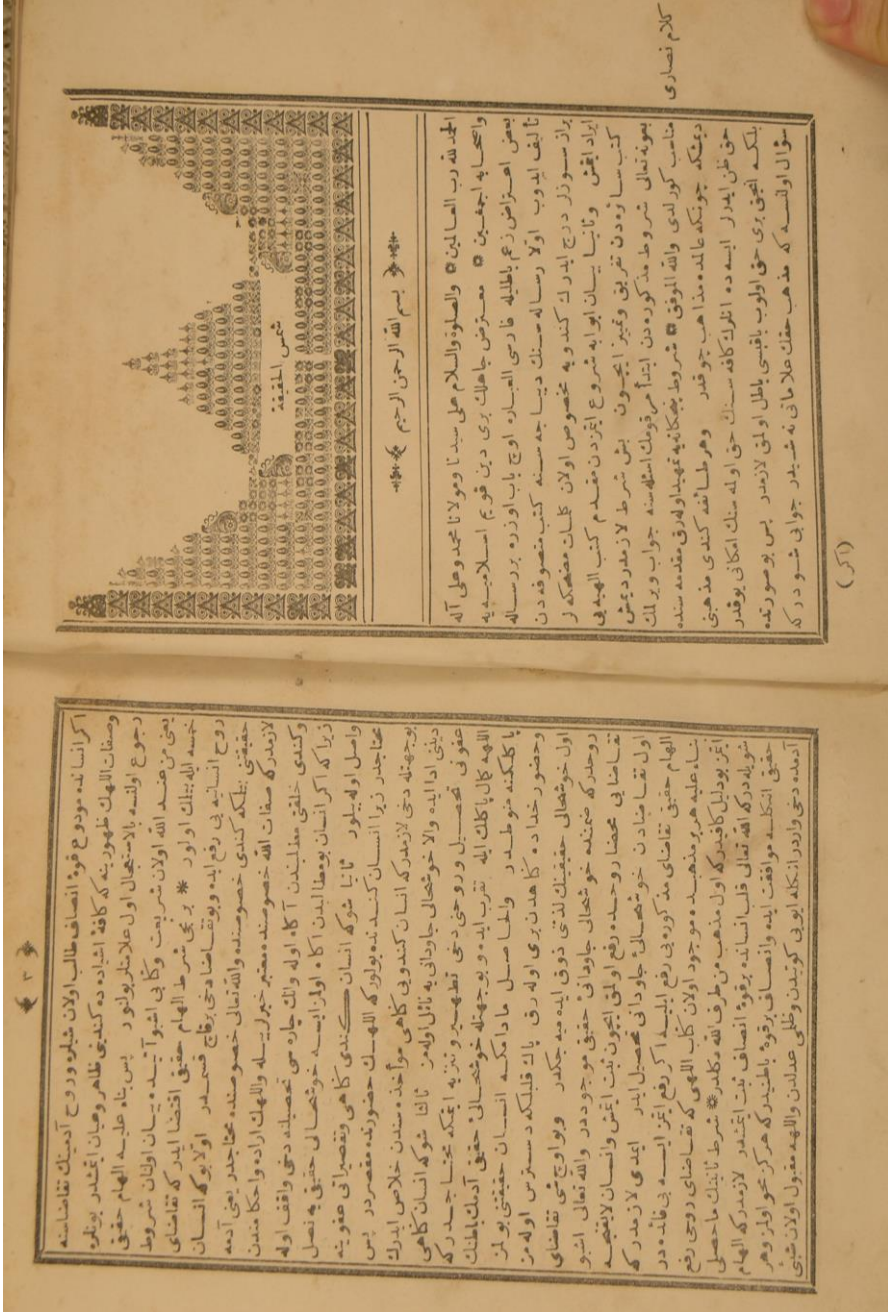 كلام نصارى
شمس الحقيقة
بسم الله الرحمن الرحيم
الحمد لله رب العالمين ۞ والصلوة والسلام على سيدنا ومولانا محمد وعلى آله
واصحابه اجمعين ۞ معترض جاهلك برى دين قويم اسلاميه يه
بعض اعتراض زعم باطليله فارسى العباره اوچ باب اوزره بر رساله
تأليف ايدوب اولا رساله سنك ديباجه سنه كتب متصوفه دن
براز سوزلر درج ايدرك كندويه مخصوص اولان كلمات مضحكه ز
ايراد ايتمش وثانيا بيان ابوابه شروع ايتزدن مقدم كتب الهيه يى
كتب سائره دن تفريق وتمييز ايچون بش شرط لازمدر ديمش
بعونه تعالى شروط مذكوره دن ابتدأ مرقومك اسئله سنه جواب ويرلمك
مناسب كورلدى والله الموفق ۞ شروط پنجگانه يه تمهيد اوله رق مقدمه سنده
ديمشكه چونكه عالمده مذاهب چوقدر وهر طائفه كندى مذهبنى
حق ظن ايدرلر ايسه ده انلرك كافه سنك حق اوله سنك امكانى يوقدر
بلكه انجق برى حق اولوب باقيسى باطل اولمق لازمدر پس بو صورتده
سؤال اولنسه كه مذهب حقك علاماتى نه شيدر جوابى شودر كه
(اكر)
﴿ ٣ ﴾
اكر انسانده مودوع قوۀ انصاف طالب اولان شيلره وروح آدمينك تقاضاسنه
وصفات اللهك ظهورينه كه كافۀ اشياده كندينى ظاهر وعيان ايتمشدر بونلره
رجوع اولنسه بالاستعجال اول علامتلر بولنور پس بناء عليه الهام حقيقى
يعنى من عند الله اولان شريعت وكتابى اشبو آتيده بيان اولنان شروط
خمسه ايله بيلك اولور * برنجى شرط الهام حقيقى اقتضا ايدر كه تقاضاى
روح انسانيه يى رفع ايده وبو تقاضا دخى برقاچ قسمدر اولا بو كه انسان
حقيقتى بيلكه كندى خصوصنده والله تعالى خصوصنده محتاجدر يعنى آدمه
لازمدر كه صفات الله خصوصنده معتبر خبرلر بيله واللهك اراده واحكامندن
وكندى خلقتى مطلبندن آگاه اوله وانك چاره سى تحصيلنه دخى واقف اوله
زيرا كه اكر انسان بو مطالبدن آگاه اولمز ايسه خوشحالئ حقيقى يه نصل
واصل اوله بيلور ثانيا شو كه انسان كندى كناهى وتقصيراتى عفوينه
محتاجدر زيرا انسان كندنده بولور كه اللهك حضورنده مقصردر پس
بو جهتله دخى لازمدر كه انسان كندويى كناهى مؤاخذه سندن خلاص ايدرك
دينى ادا ايده والا خوشحالى جاودانى يه نائل اوله مز ثالثا شو كه انسان كناهى
عفونى تحصيل وروحنى دخى تطهير وتنزيه ايتمكه محتاجدر كه
اللهه كمال پاكلك ايله تقرب ايده وبو جهتله خوشحالئ حقيقى آدمك باطنك
پاكلكنه منوطدر والحاصل مادامكه انسان حقيقتى بولمز
وحضور خداده كناهدن برى اوله رق پاك قلبلكه دسترس اوله مز
اول خوشحالئ حقيقينك لذتنى ذوق ايده ميه جكدر وبو اوچ شى تقاضاى
روحدر كه ضمننده خوشحالئ جاودانئ حقيقى موجوددر والله تعالى اشبو
تقاضايى محضا روحده رفع اولمق ايچون ثبت ايتمش وانسان لاينقطع
اول تقاضادن خوشحالئ جاودانى تحصيل ايدر ايمدى لازمدر كه
الهام حقيقى تقاضاى مذكوره يى رفع ايليه اكر رفع ايتمز ايسه بى فائده در
بناء عليه هر بر مذهبده موجود اولان كتاب اللهى كه تقاضاى روحى رفع
ايتمز بو دليل كافيدر كه اول مذهب من طرف الله دكلدر ۞ شرط ثانينك ماحصلى
شويله در كه الله تعالى قلب انسانده بر قوۀ انصاف ثبت ايتمشدر لازمدر كه الهام
حقيقى انكله موافقت ايده وانصاف بر قوۀ باطنيدر كه هركز محو اولمز وهر
آدمده دخى واردر انكله ايويى كوتيدن وظلمى عدلدن واللهه مقبول اولان شيئى